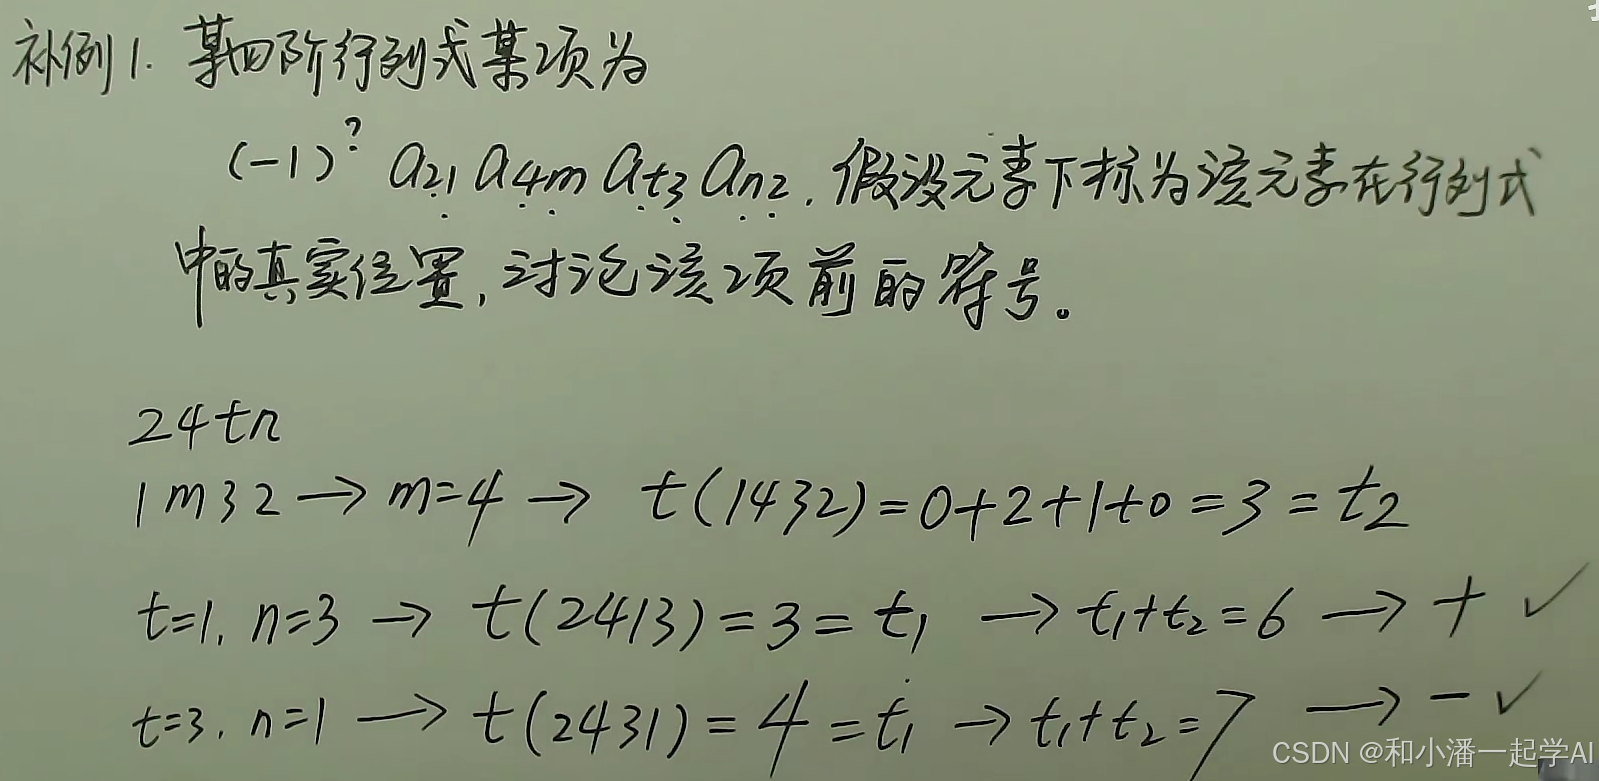 补例1. 某四阶行列式某项为
(-1)^? a₂₁ a₄ₘ aₜ₃ aₙ₂, 假设元素下标为该元素在行列式
中的真实位置, 讨论该项前的符号。
24tn
1m32 → m=4 → t(1432)=0+2+1+0=3=t₂
t=1, n=3 → t(2413)=3=t₁ → t₁+t₂=6 → + ✓
t=3, n=1 → t(2431)=4=t₁ → t₁+t₂=7 → - ✓
CSDN @和小潘一起学AI